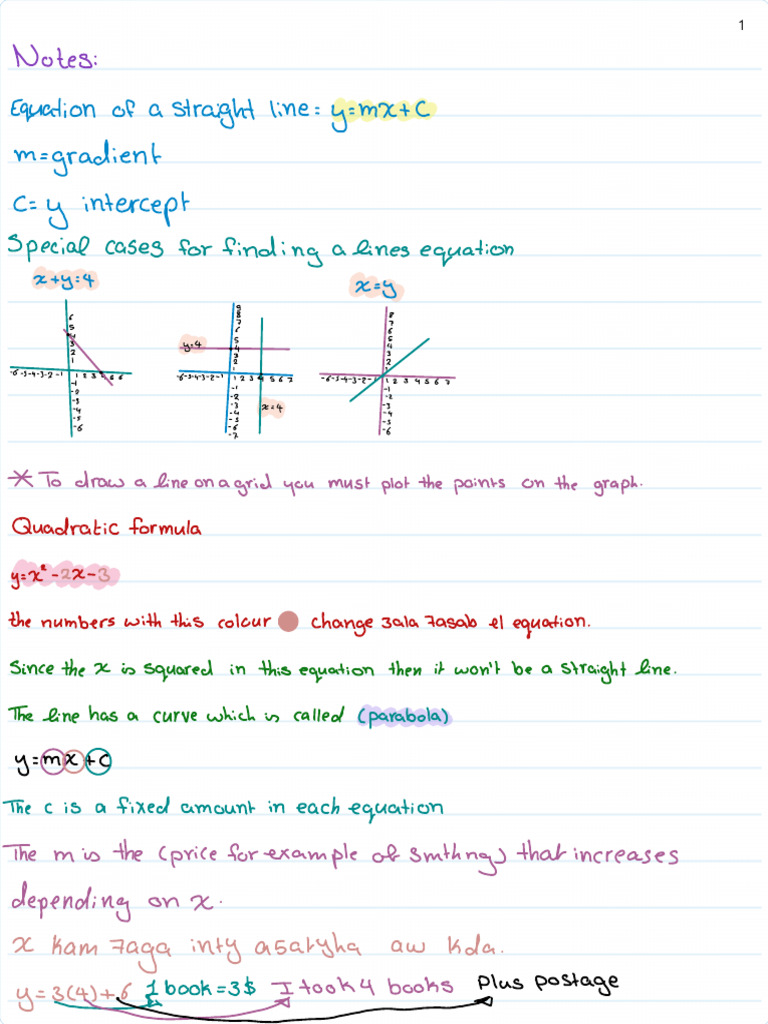 1
Notes:
Equation of a straight line: y=mx+c
m=gradient
c= y intercept
Special cases for finding a lines equation
x+y=4
x=y
y=4
x=4
* To draw a line on a grid you must plot the points on the graph.
Quadratic formula
y=x²-2x-3
the numbers with this colour change 3ala 7asab el equation.
Since the x is squared in this equation then it won't be a straight line.
The line has a curve which is called (parabola)
y=mx+c
The c is a fixed amount in each equation
The m is the (price for example of smthng) that increases
depending on x.
x kam 7aga inty a5atyha aw kda.
y=3(4)+6 1 book=3$ I took 4 books plus postage